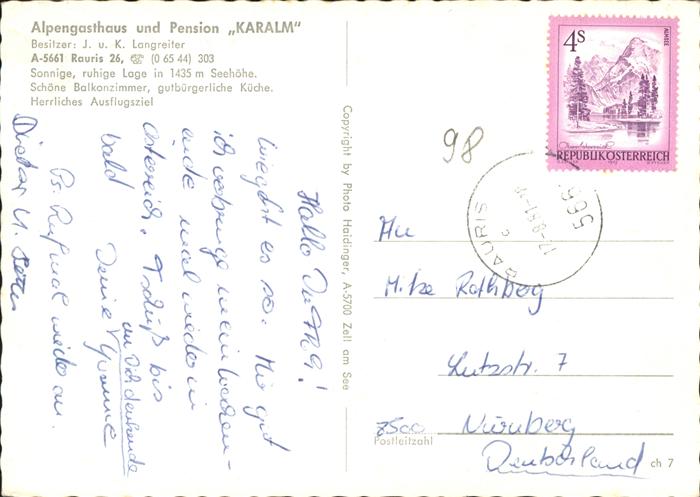 Alpengasthaus und Pension „KARALM"
Besitzer: J. u. K. Langreiter
A-5661 Rauris 26, ☎ (0 65 44) 303
Sonnige, ruhige Lage in 1435 m Seehöhe.
Schöne Balkonzimmer, gutbürgerliche Küche.
Herrliches Ausflugsziel
Hallo
wie geht es so. Mir gut
ich verbringe mein Wochen-
ende mal wieder in
Österreich. Tschüß bis
bald Deine Yvonne
an Dich denkende
Ps. Ruf mal wieder an.
Dieter u.
Copyright by Photo Haidinger, A-5700 Zell am See
98
4S
ALMSEE
Oberösterreich
REPUBLIK ÖSTERREICH
RAURIS
An
Rothberg
Lutzstr. 7
7500 Nürnberg
Postleitzahl
Deutschland
ch 7